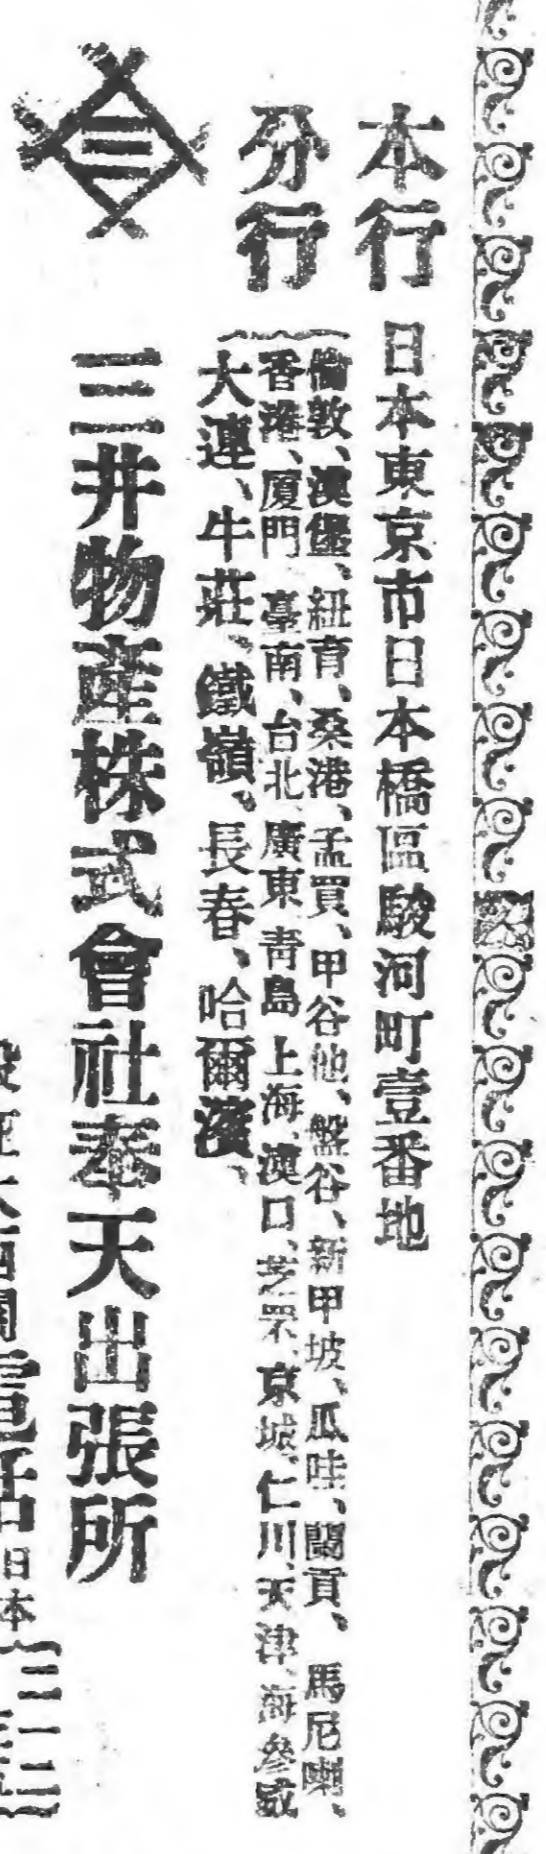 本行 日本東京市日本橋區駿河町壹番地
分行
倫敦、漢堡、紐育、桑港、孟買、甲谷他、盤谷、新甲坡、瓜哇、蘭貢、馬尼喇、
香港、厦門、臺南、台北、廣東、青島、上海、漢口、芝罘、京城、仁川、天津、海參威
大連、牛莊、鐵嶺、長春、哈爾濱、
三井物産株式會社奉天出張所
電話 日本